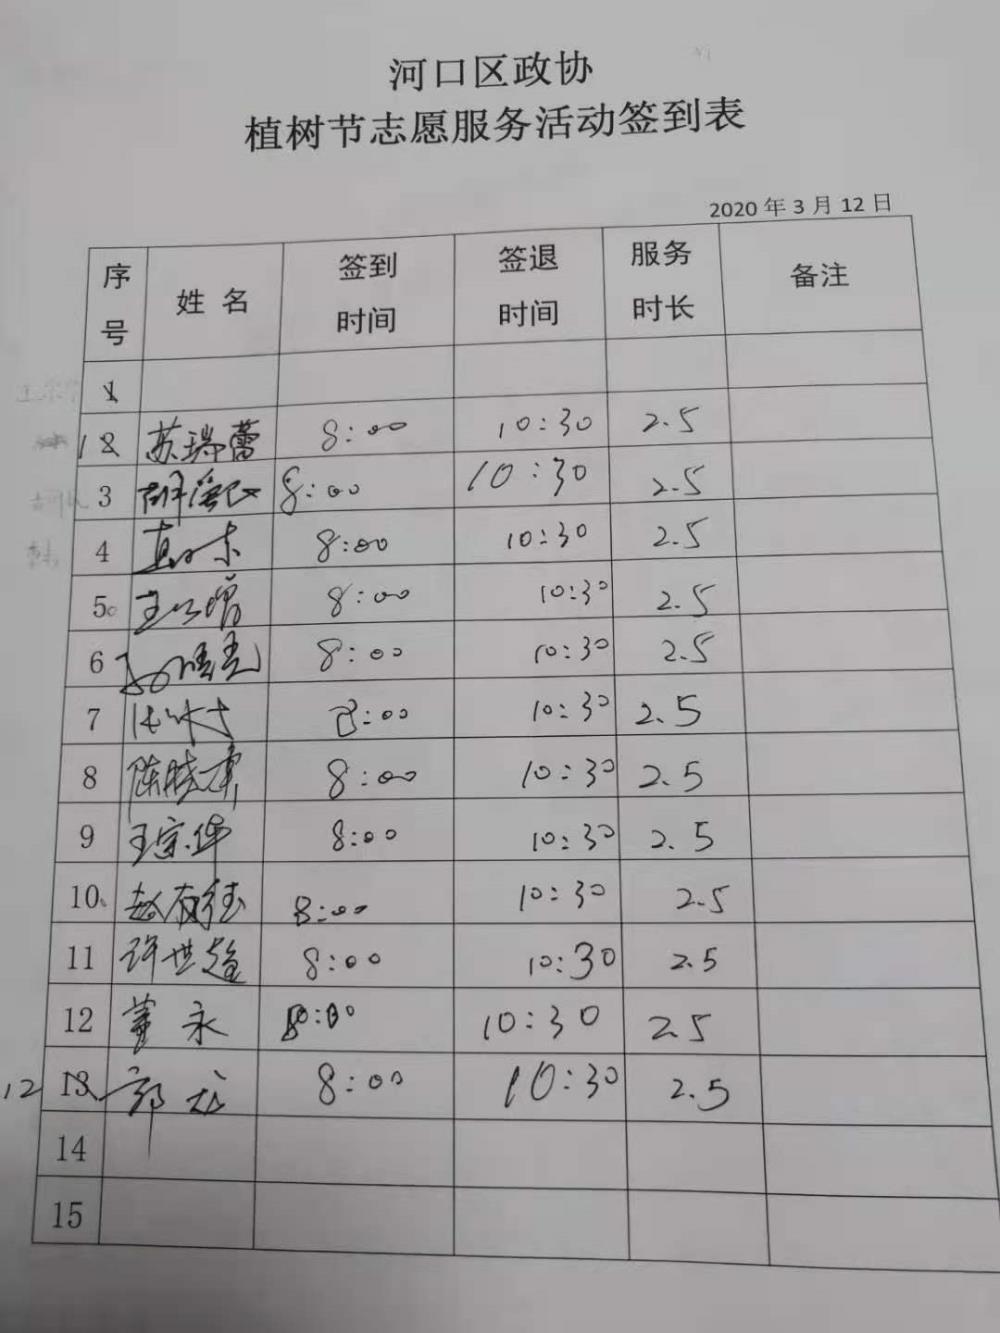 河口区政协
植树节志愿服务活动签到表
2020 年 3 月 12 日
序号 姓 名 签到时间 签退时间 服务时长 备注
1
1 2 苏瑞蕾 8:00 10:30 2.5
3 8:00 10:30 2.5
4 8:00 10:30 2.5
5 8:00 10:30 2.5
6 8:00 10:30 2.5
7 8:00 10:30 2.5
8 陈晓 8:00 10:30 2.5
9 王宗华 8:00 10:30 2.5
10 赵 8:00 10:30 2.5
11 许世超 8:00 10:30 2.5
12 董永 8:00 10:30 2.5
12 13 郭龙 8:00 10:30 2.5
14
15